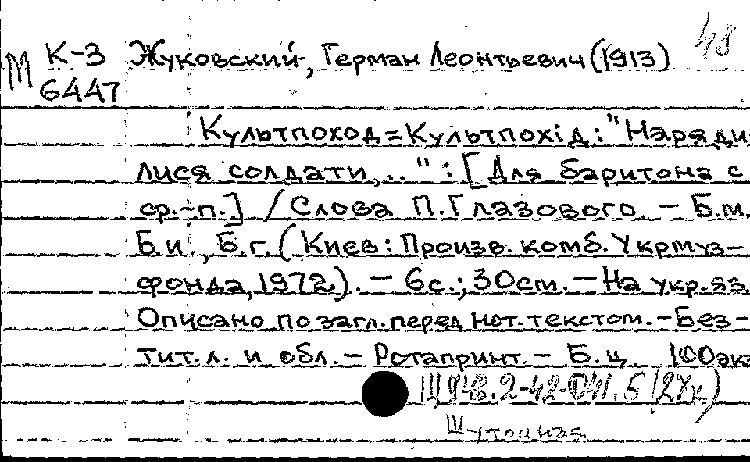 48
М К-3 Жуковский, Герман Леонтьевич (1913)
6447
Культпоход = Культпохід : "Наряди
лися солдати,.." : [Для баритона с
ср.-п.] / Слова П.Глазового. - Б.м.
Б.и., Б.г. (Киев : Произв. комб. Укрмуз-
фонда, 1972). - 6с.; 30см. - На укр.яз
Описано по загл. перед нот. текстом. - Без-
тит.л. и обл. - Ротапринт. - Б.ц. 100экз
Шуточная